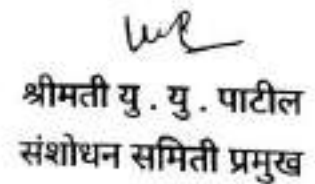 श्रीमती यु . यु . पाटील
संशोधन समिती प्रमुख